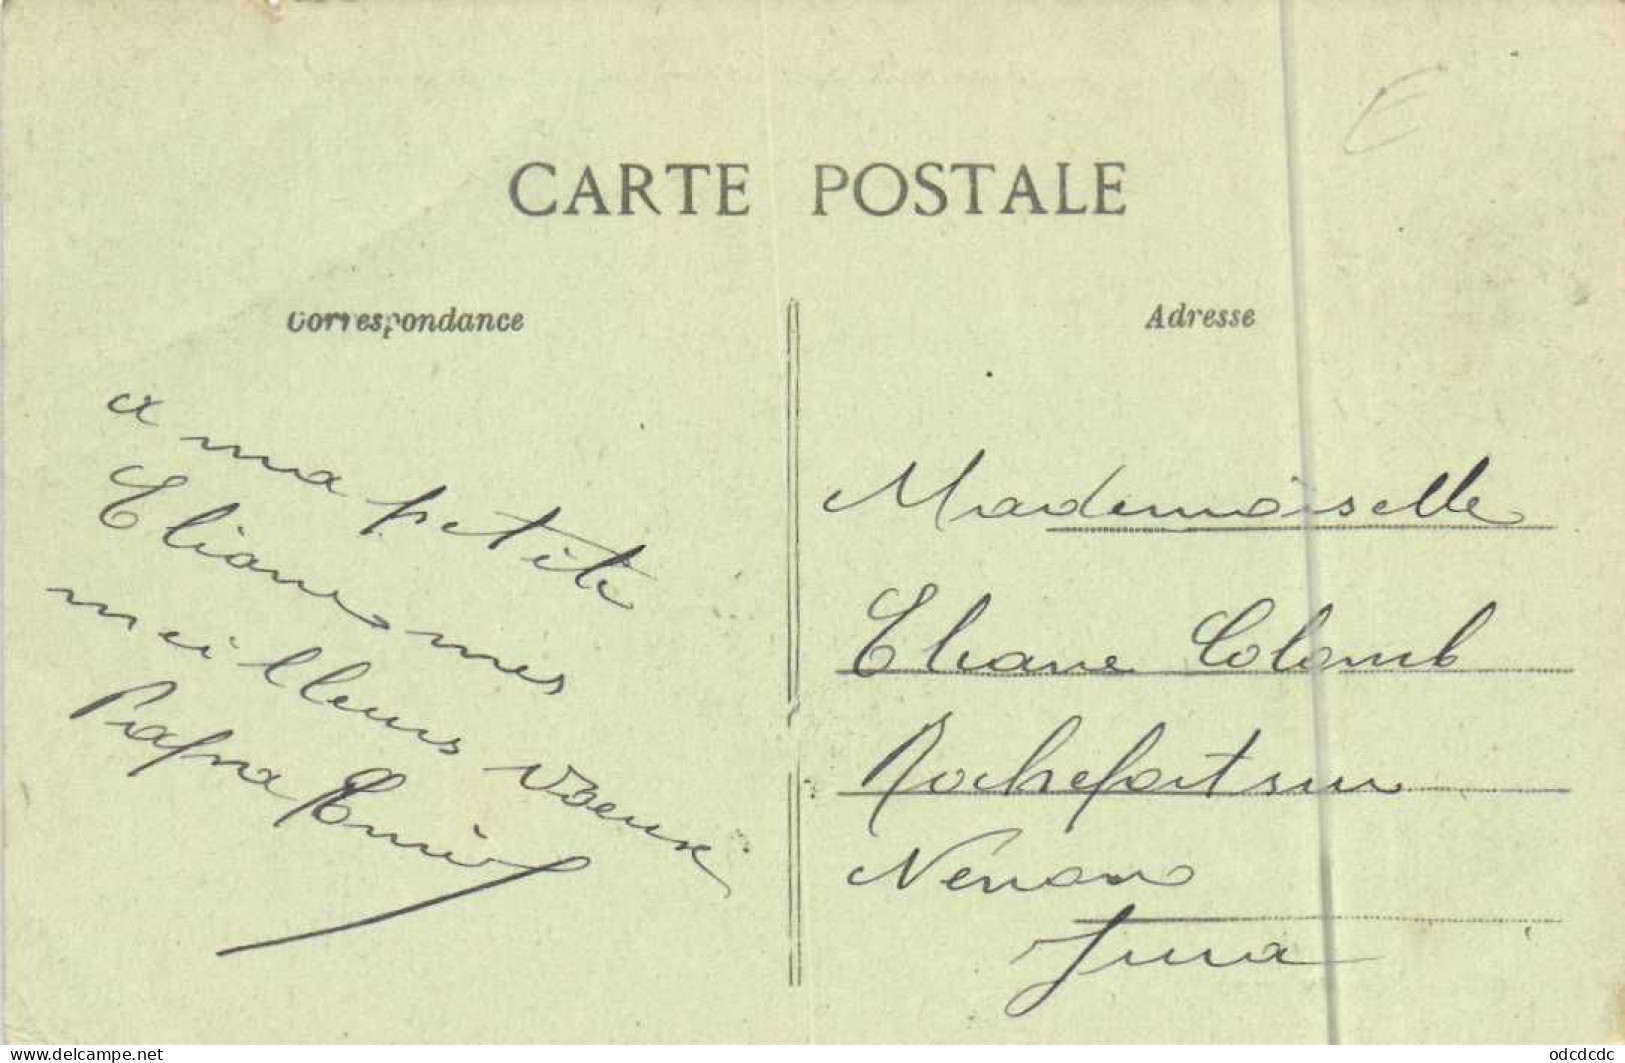 CARTE POSTALE
Correspondance
a ma petite
Eliane mes
meilleurs voeux
Papa
Adresse
Mademoiselle
Eliane Colomb
Rochefort sur
Nenon
Jura
www.delcampe.net
odcdcdc